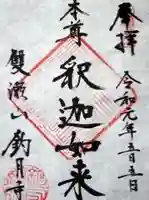 奉拝
令和元年五月五日
本尊
釋迦如来
雙瀬山
釣月寺